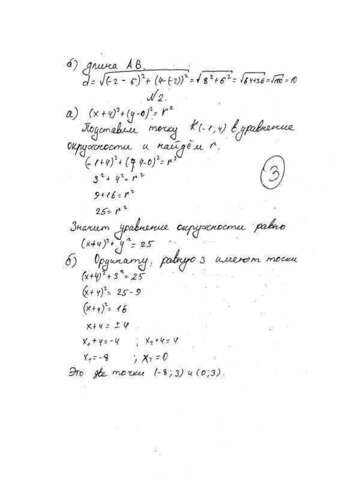 б) длина AB
d = √(-2 - 6)² + (4-(-2))² = √8² + 6² = √64+36 = √100 = 10
№2.
а) (x+4)² + (y-0)² = r²
Подставим точку K(-1,4) в уравнение
окружности и найдём r.
(-1+4)² + (4-0)² = r²
3² + 4² = r²
9+16 = r²
3
25 = r²
Значит уравнение окружности равно
(x+4)² + y² = 25
б) Ординату, равную 3 имеют точки
(x+4)² + 3² = 25
(x+4)² = 25-9
(x+4)² = 16
x+4 = ±4
x₁+4 = -4 ; x₂+4 = 4
x₁ = -8 ; x₂ = 0
Это две точки (-8; 3) и (0; 3).